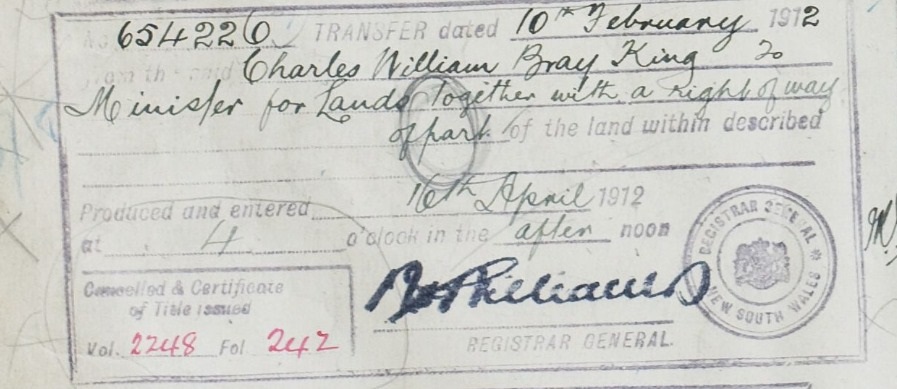 No 654226 TRANSFER dated 10th February 1912
from the said Charles William Bray King to
Minister for Lands Together with a right of way
of part of the land within described
Produced and entered 16th April 1912
at 4 o'clock in the after noon
REGISTRAR GENERAL
NEW SOUTH WALES
Cancelled & Certificate
of Title issued
Vol. 2248 Fol 242
REGISTRAR GENERAL.